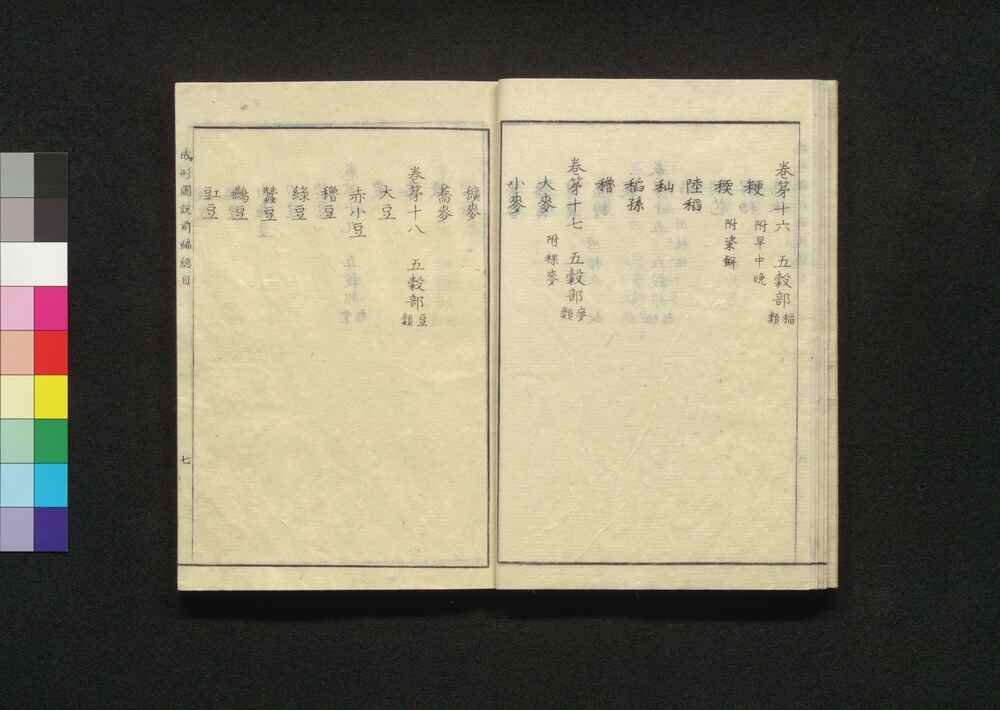 巻第十六 五穀部 稲類
粳 附早中晩
稬 附粢餅
陸稲
秈
稲孫
穭
巻第十七 五穀部 麥類
大麥 附稞麥
小麥
穬麥
蕎麥
巻第十八 五穀部 豆類
大豆
赤小豆
穭豆
緑豆
蠶豆
豇豆
成形圖説前編總目
七